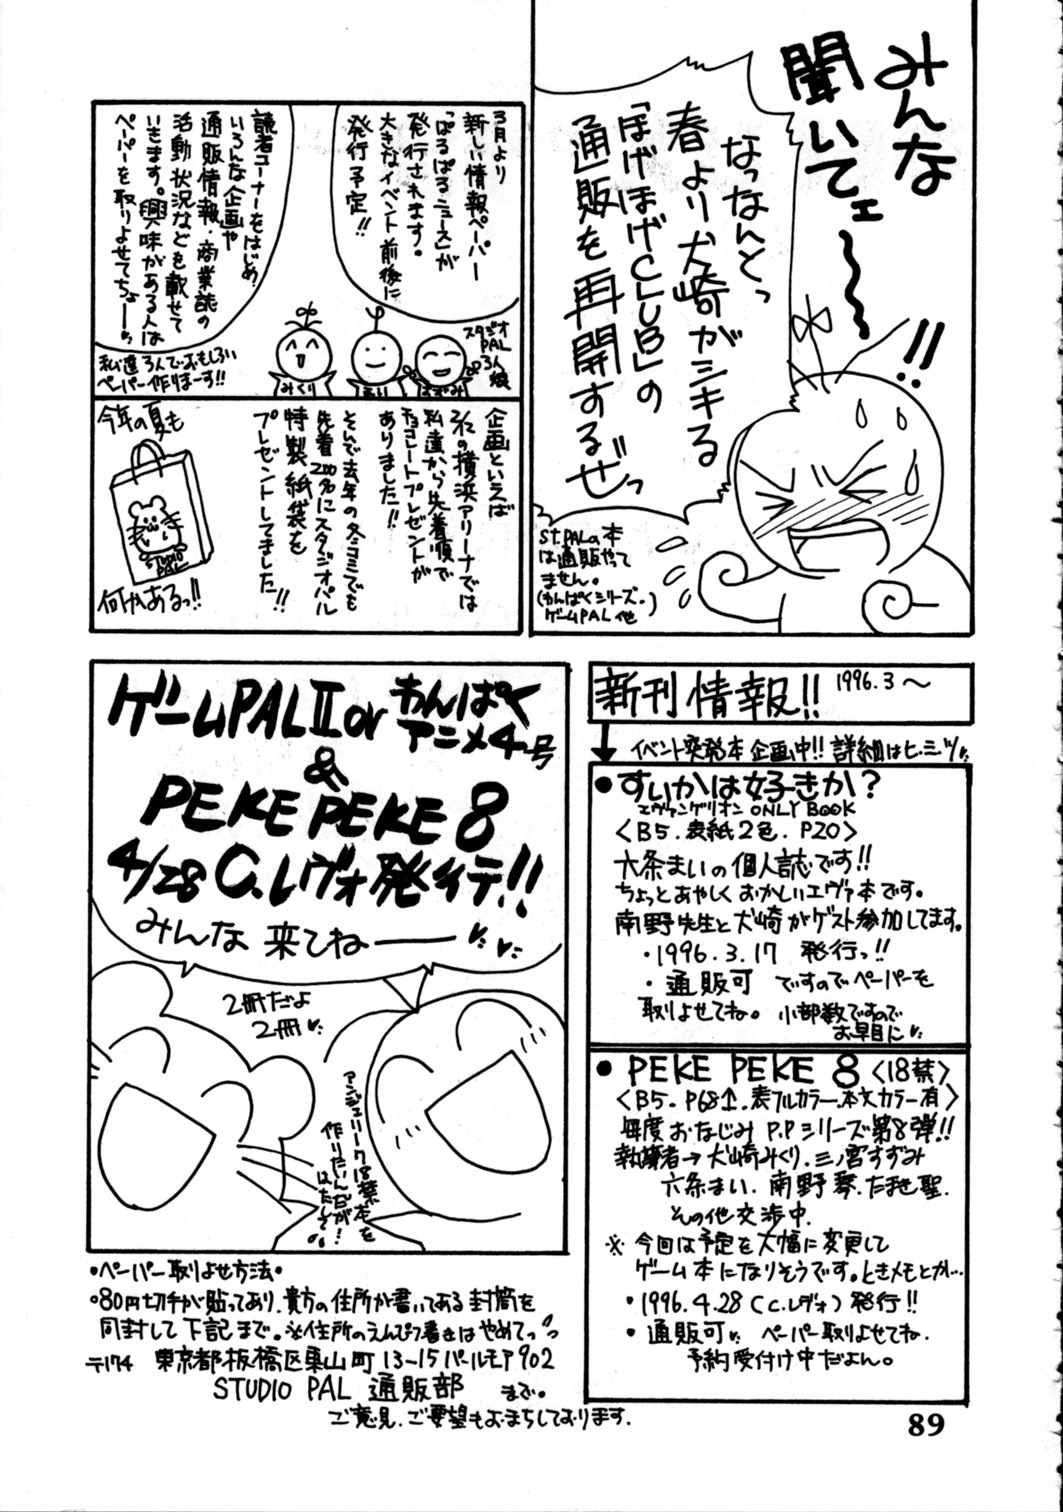 みんな
聞いてェ〜〜!!
なっなんとっ
春より犬崎がシキる
「ほげほげCLUB」の
通販を再開するぜっ
St.PALの本
は通販やって
ません。
(わんぱくシリーズ。)
ゲームPAL他
3月より
新しい情報ペーパー
「ぱるぱるニュース」が
発行されます。
大きなイベント前後に
発行予定!!
読者コーナーをはじめ、
いろんな企画や
通販情報・商業誌の
活動状況などを載せて
いきます。興味がある人は
ペーパーを取りよせてちょーー
スタジオ
PAL
3人
娘
みくり
まり
はずみ
私達3人でおもしろい
ペーパー作りまーす!!
企画といえば
3/2の横浜アリーナでは
私達から先着順で
チョコレートプレゼントが
ありました!!
そんで去年の冬コミでも
先着200名にスタジオパル
特製紙袋を
プレゼントしてました!!
今年の夏も
STUDIO
PAL
何かあるっ!!
ゲームPALⅡor
わんぱく
アニメ4号
&
PEKE PEKE 8
4/28 C.レヴォ発行デ!!
みんな来てねーーー
2冊だよ
2冊
アンジェリーク18禁本を
作りたいんだが!
はたして
新刊情報!! 1996.3〜
イベント突発本企画中!! 詳細はヒ・ミ・ツ
●すいかは好きか?
エヴァンゲリオン ONLY BOOK
〈B5.表紙2色.P20〉
六条まいの個人誌です!!
ちょっとあやしくおかしいエヴァ本です。
南野先生と犬崎がゲスト参加してます。
・1996.3.17 発行っ!!
・通販可 ですのでペーパーを
取りよせてね。小部数ですので
お早目に
●PEKE PEKE 8〈18禁〉
〈B5.P68↑.表フルカラー.本文カラー有〉
毎度おなじみP.Pシリーズ第8弾!!
執筆者→犬崎みくり.三ノ宮すずみ
六条まい.南野琴.たませ聖.
その他交渉中.
※今回は予定を大幅に変更して
ゲーム本になりそうです。ときメモとか…
・1996.4.28(C.レヴォ)発行!!
・通販可 ペーパー取りよせてね.
予約受付け中だよん。
・ペーパー取りよせ方法・
・80円切手が貼ってあり.貴方の住所が書いてある封筒を
同封して下記まで。※住所のえんぴつ書きはやめてっ
〒174 東京都板橋区東山町13-15パールモア902
STUDIO PAL 通販部 まで。
ご意見.ご要望もおまちしております.
89